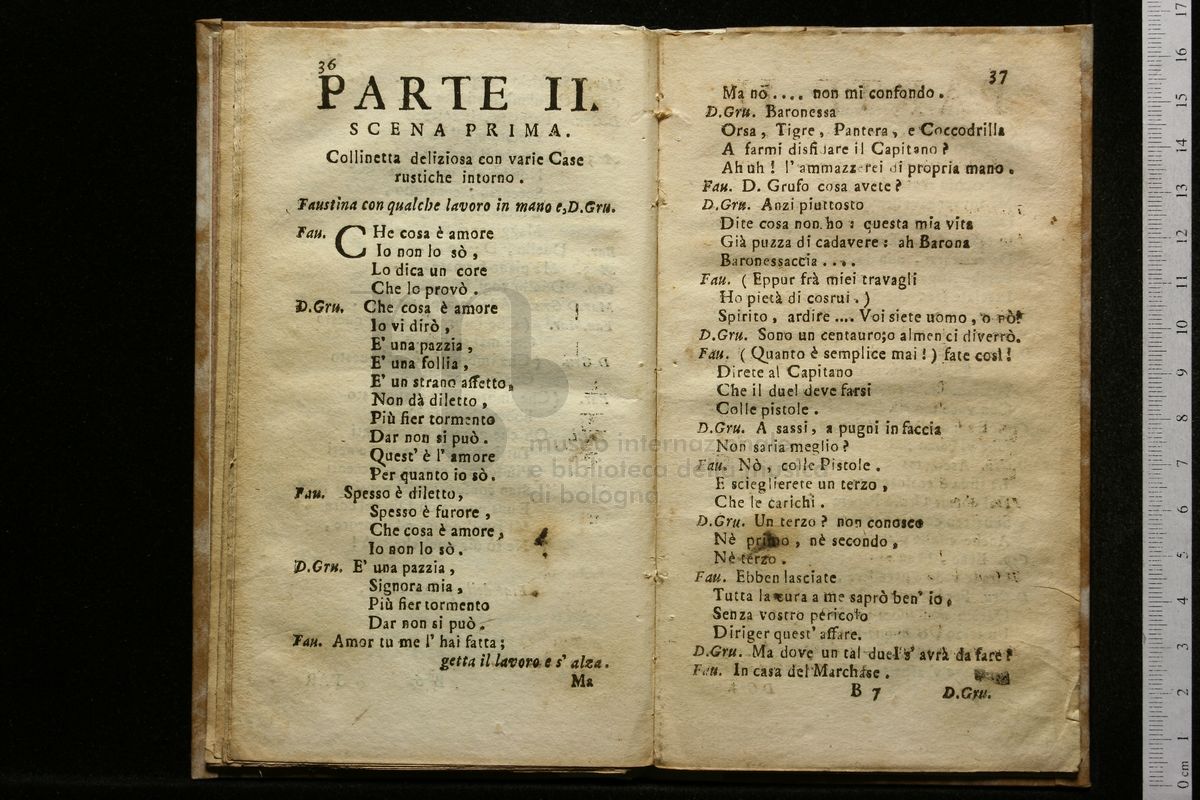 36
PARTE II.
SCENA PRIMA.
Collinetta deliziosa con varie Case
rustiche intorno.
Faustina con qualche lavoro in mano e, D.Gru.
Fau. CHe cosa è amore
Io non lo sò,
Lo dica un core
Che lo provò.
D.Gru. Che cosa è amore
Io vi dirò,
E' una pazzia,
E' una follia,
E' un strano affetto,
Non dà diletto,
Più fier tormento
Dar non si può.
Quest' è l' amore
Per quanto io sò.
Fau. Spesso è diletto,
Spesso è furore,
Che cosa è amore,
Io non lo sò.
D.Gru. E' una pazzia,
Signora mia,
Più fier tormento
Dar non si può.
Fau. Amor tu me l' hai fatta;
getta il lavoro e s' alza.
Ma
37
Ma nò .... non mi confondo.
D.Gru. Baronessa
Orsa, Tigre, Pantera, e Coccodrilla
A farmi disfidare il Capitano?
Ah uh! l' ammazzerei di propria mano.
Fau. D. Grufo cosa avete?
D.Gru. Anzi piuttosto
Dite cosa non ho: questa mia vita
Già puzza di cadavere: ah Barona
Baronessaccia....
Fau. (Eppur frà miei travagli
Ho pietà di costui.)
Spirito, ardire .... Voi siete uomo, o nò?
D.Gru. Sono un centauro; o almen ci diverrò.
Fau. (Quanto è semplice mai!) fate così!
Direte al Capitano
Che il duel deve farsi
Colle pistole.
D.Gru. A sassi, a pugni in faccia
Non saria meglio?
Fau. Nò, colle Pistole.
E scieglierete un terzo,
Che le carichi.
D.Gru. Un terzo? non conosco
Nè primo, nè secondo,
Nè terzo.
Fau. Ebben lasciate
Tutta la cura a me saprò ben' io,
Senza vostro pericolo
Diriger quest' affare.
D.Gru. Ma dove un tal duel s' avrà da fare?
Fau. In casa del Marchese.
B 7
D.Gru.
museo internazionale
e biblioteca della musica
di bologna
17
16
15
14
13
12
11
10
9
8
7
6
5
4
3
2
1
0 cm